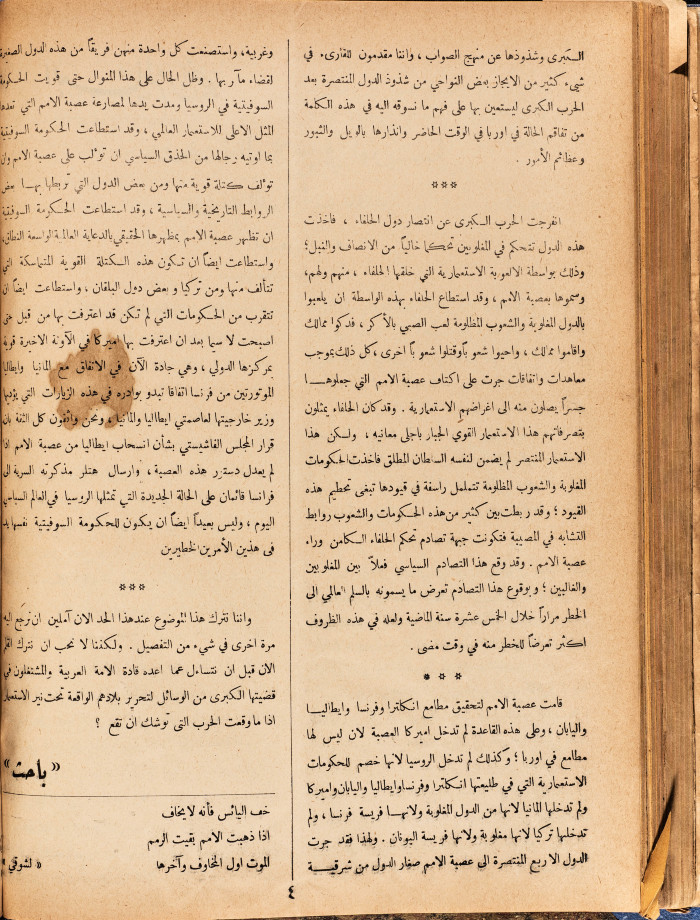 الكبرى وشذوذها عن منهج الصواب ، واننا مقدمون للقارىء في
شيء كثير من الايجاز بعض النواحي من شذوذ الدول المنتصرة بعد
الحرب الكبرى ليستعين بها على فهم ما نسوقه اليه في هذه الكلمة
من تفاقم الحالة في اوربا في الوقت الحاضر وانذارها بالويل والثبور
وعظائم الأمور .
***
انفرجت الحرب الكبرى عن انتصار دول الحلفاء ، فاخذت
هذه الدول تتحكم في المغلوبين تحكما خالياً من الانصاف والنبل؛
وذلك بواسطة الالعوبة الاستعمارية التي خلقها الحلفاء ، منهم ولهم،
وسموها بعصبة الامم ، وقد استطاع الحلفاء بهذه الواسطة ان يلعبوا
بالدول المغلوبة والشعوب المظلومة لعب الصبي بالأكر، فدكوا ممالك
واقاموا ممالك ، واحيوا شعوباً وقتلوا شعوباً اخرى ،كل ذلك بموجب
معاهدات واتفاقات جرت على اكتاف عصبة الامم التي جعلوهـا
جسراً يصلون منه الى اغراضهم الاستعمارية . وقد كان الحلفاء يمثلون
بتصرفاتهم هذا الاستعمار القوي الجبار باجلى معانيه ، ولكن هذا
الاستعمار المنتصر لم يضمن لنفسه السلطان المطلق فاخذت الحكومات
المغلوبة والشعوب المظلومة تتململ راسفة في قيودها تبغى تحطيم هذه
القيود ؛ وقد ربطت بين كثير من هذه الحكومات والشعوب روابط
التشابه في المصيبة فتكونت جبهة تصادم تحكم الحلفاء الكامن وراء
عصبة الامم . وقد وقع هذا التصادم السياسي فعلاً بين المغلوبين
والغالبين ؛ وبوقوع هذا التصادم تعرض ما يسمونه بالسلم العالمي الى
الخطر مراراً خلال الخمس عشرة سنة الماضية ولعله في هذه الظروف
اكثر تعرضاً للخطر منه في وقت مضى .
* * *
قامت عصبة الامم لتحقيق مطامع انكلترا وفرنسا وايطاليـا
واليابان ، وعلى هذه القاعدة لم تدخل اميركا العصبة لان ليس لها
مطامع في اوربا ؛ وكذلك لم تدخل الروسيا لانها خصم للحكومات
الاستعمارية التي في طليعتها انكلترا وفرنسا وايطاليا واليابان واميركا
ولم تدخلها المانيا لانها من الدول المغلوبة ولانهـا فريسة فرنسا ، ولم
تدخلها تركيا لانها مغلوبة ولانها فريسة اليونان . ولهذا فقد جرت
الدول الاربع المنتصرة الى عصبة الامم صغار الدول من شرقيـة
وغربية، واستصنعت كل واحدة منهن فريقاً من هذه الدول الصغيرة
لقضاء مآربها . وظل الحال على هذا المنوال حتى قويت الحكومة
السوفيتية في الروسيا ومدت يدها لمصارعة عصبة الامم التي تعدها
المثل الاعلى للاستعمار العالمي ، وقد استطاعت الحكومة السوفيتية
بما اوتيه رجالها من الحذق السياسي ان تؤلب على عصبة الامم وان
تؤلف كتلة قوية منها ومن بعض الدول التي تربطها بهـا بعض
الروابط التاريخية والسياسية ، وقد استطاعت الحكومة السوفيتية
ان تظهر عصبة الامم بمظهرها الحقيقي بالدعاية العالمية الواسعة النطاق،
واستطاعت ايضاً ان تكون هذه الكتلة القوية المتماسكة التي
تتألف منها ومن تركيا وبعض دول البلقان ، واستطاعت ايضاً ان
تتقرب من الحكومات التي لم تكن قد اعترفت بها من قبل حتى
اصبحت لا سيما بعد ان اعترفت بها اميركا في الآونة الاخيرة قوية
بمركزها الدولي ، وهي جادة الآن في الاتفاق مع المانيا وايطاليا
الموتورتين من فرنسا اتفاقا تبدو بوادره في هذه الزيارات التي يؤديها
وزير خارجيتها لعاصمتي ايطاليا والمانيا ، ونحن واثقون كل الثقة بان
قرار المجلس الفاشيستي بشأن انسحاب ايطاليا من عصبة الامم اذا
لم يعدل دستور هذه العصبة ، وارسال هتلر مذكرته السرية الى
فرنسا قائمان على الحالة الجديدة التي تمثلها الروسيا في العالم السياسي
اليوم ، وليس بعيداً ايضاً ان يكون للحكومة السوفيتية نفسها يد
فى هذين الأمرين الخطيرين
***
واننا نترك هذا الموضوع عند هذا الحد الان آملين ان نرجع اليه
مرة اخرى في شيء من التفصيل . ولكننا لا نحب ان نترك القلم
الان قبل ان نتساءل عما اعده قادة الامة العربية والمشتغلون في
قضيتها الكبرى من الوسائل لتحرير بلادهم الواقعة تحت نير الاستعمار
اذا ما وقعت الحرب التى توشك ان تقع ؟
« باحث »
خف اليائس فأنه لا يخاف
اذا ذهبت الامم بقيت الرمم
الموت اول المخاوف وآخرها
« لشوقي »
٤